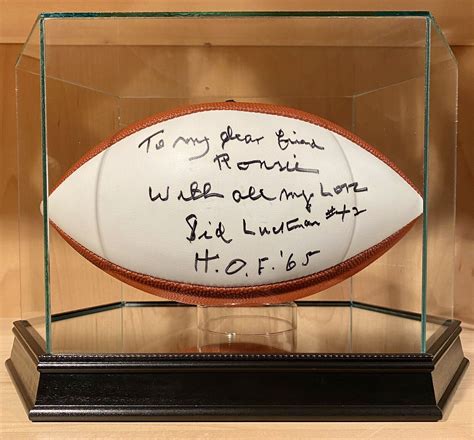 To my dear friend
Ronnie
With all my Love
Sid Luckman #42
H.O.F. '65